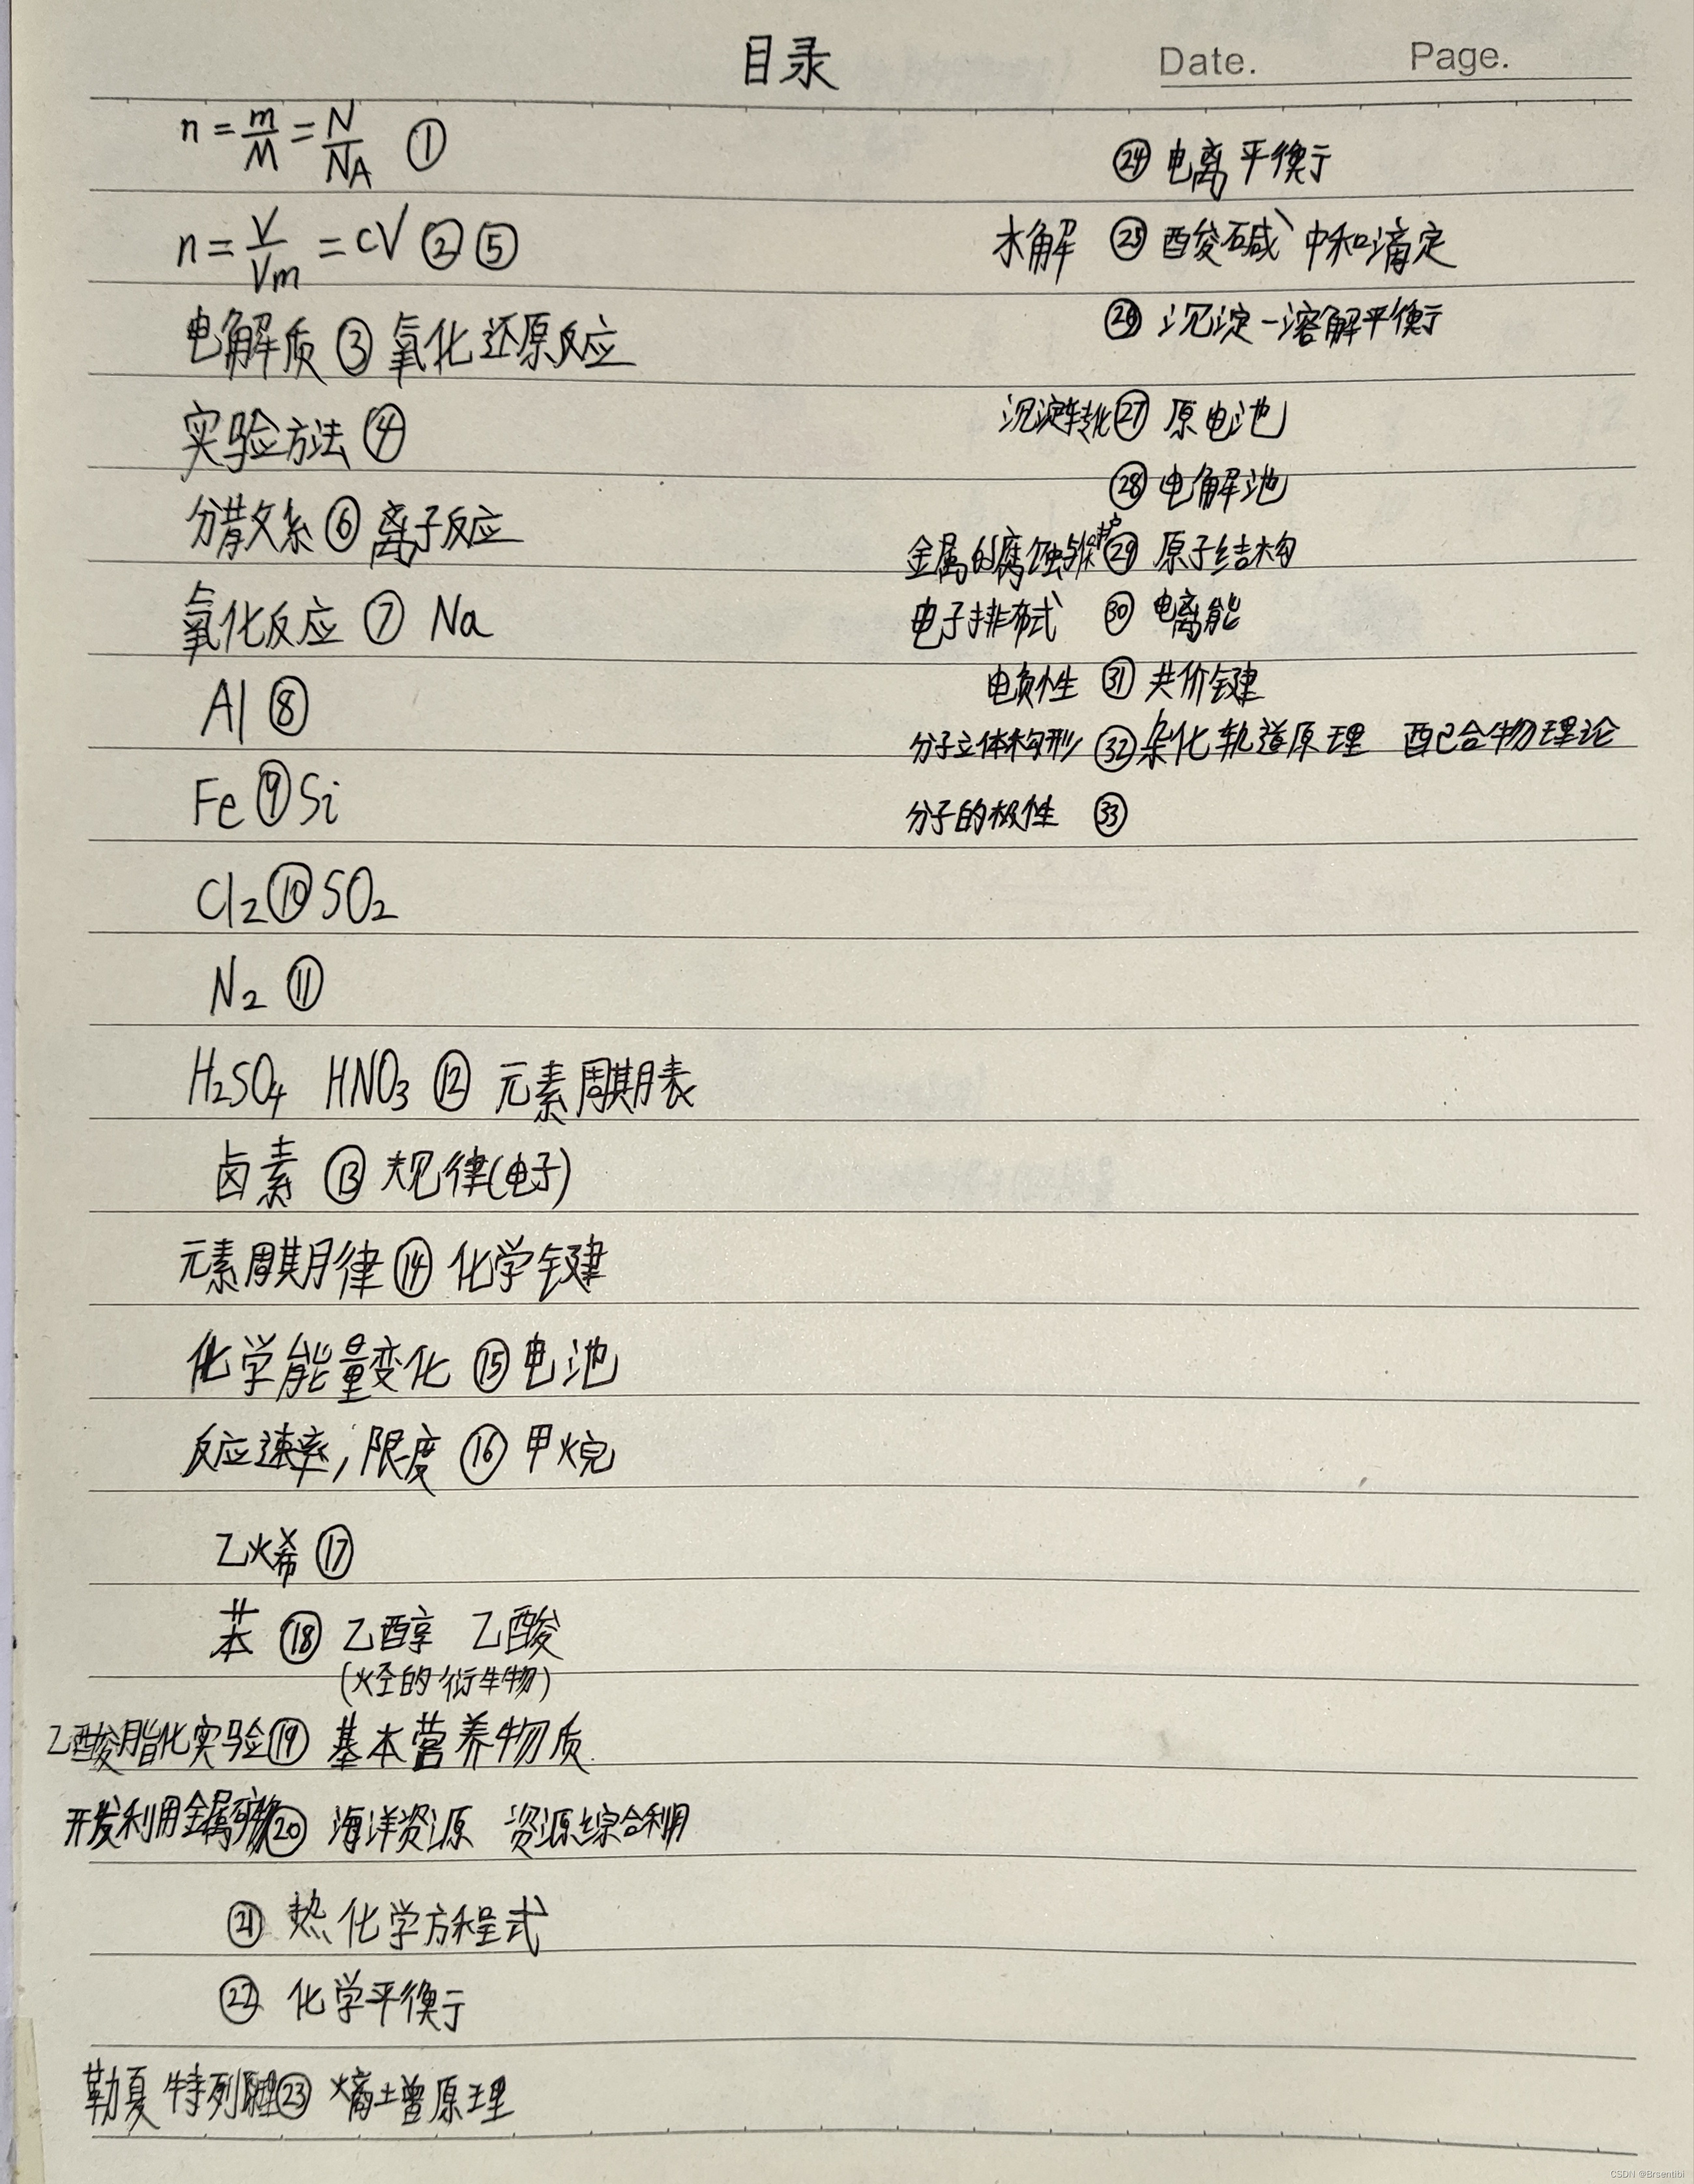 目录
Date. Page.
n = m/M = N/NA ①
n = V/Vm = cV ② ⑤
电解质 ③ 氧化还原反应
实验方法 ④
分散系 ⑥ 离子反应
氧化反应 ⑦ Na
Al ⑧
Fe ⑨ Si
Cl₂ ⑩ SO₂
N₂ ⑪
H₂SO₄ HNO₃ ⑫ 元素周期表
卤素 ⑬ 规律(电子)
元素周期律 ⑭ 化学键
化学能量变化 ⑮ 电池
反应速率,限度 ⑯ 甲烷
乙烯 ⑰
苯 ⑱ 乙醇 乙酸
(烃的衍生物)
乙酸脂化实验 ⑲ 基本营养物质
开发利用金属矿物 ⑳ 海洋资源 资源综合利用
㉑ 热化学方程式
㉒ 化学平衡
勒夏特列原理 ㉓ 熵增原理
㉔ 电离平衡
水解 ㉕ 酸碱中和滴定
㉖ 沉淀-溶解平衡
沉淀转化 ㉗ 原电池
㉘ 电解池
金属的腐蚀与保护 ㉙ 原子结构
电子排布式 ㉚ 电离能
电负性 ㉛ 共价键
分子立体构形 ㉜ 杂化轨道原理 配合物理论
分子的极性 ㉝
CSDN @Brsentibi